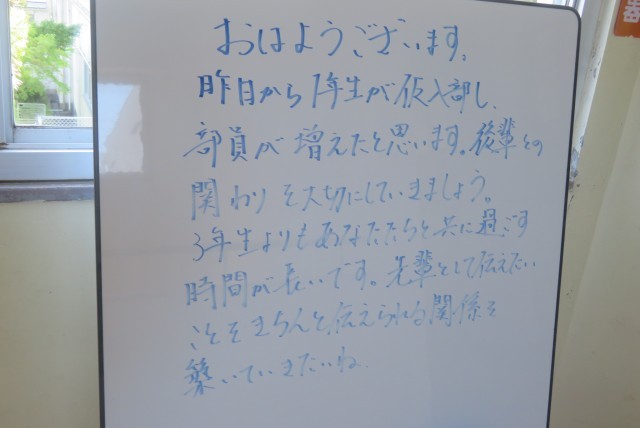 おはようございます。
昨日から1年生が仮入部し、
部員が増えたと思います。後輩との
関わりを大切にしていきましょう。
3年生よりもあなたたちと共に過ごす
時間が長いです。先輩として伝えたい
ことをきちんと伝えられる関係を
築いていきたいね。